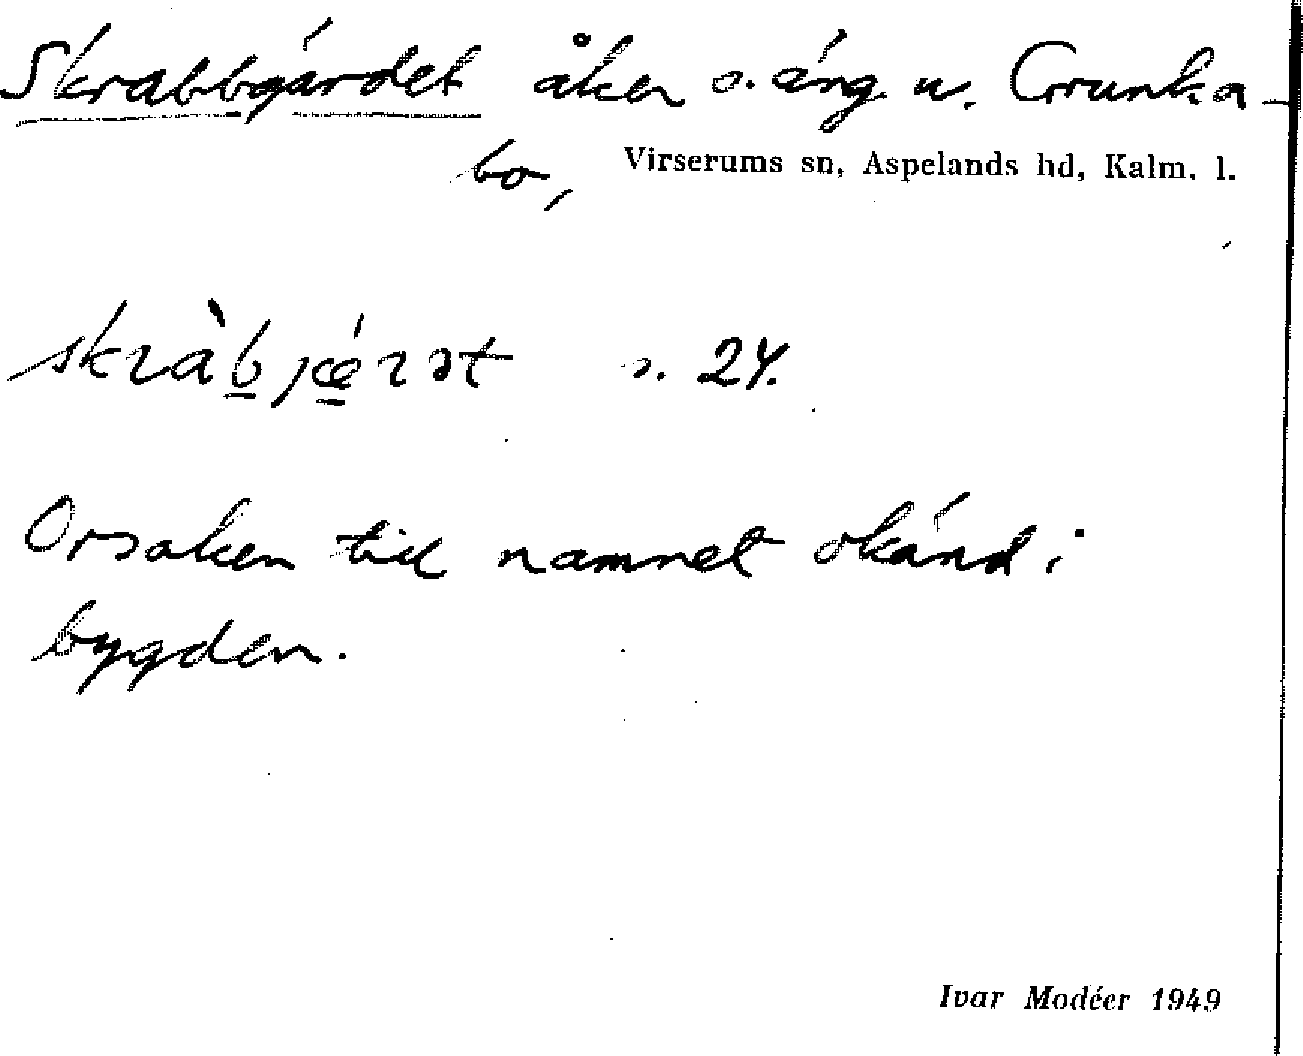 Skrabbgärdet åker o. äng u. Grunka-
bo,
Virserums sn, Aspelands hd, Kalm. l.
skràbjærət s. 24.
Orsaken till namnet okänd i
bygden.
Ivar Modéer 1949